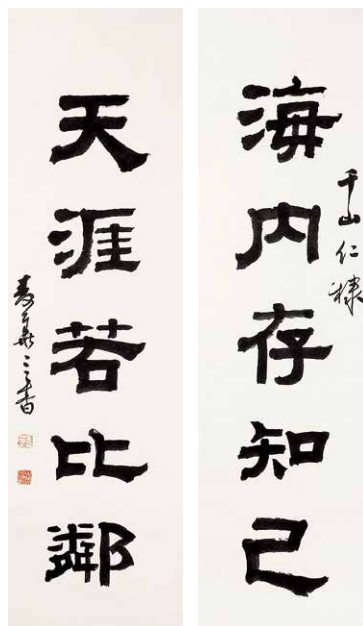 海内存知己
千山仁棣
天涯若比鄰
麦華三